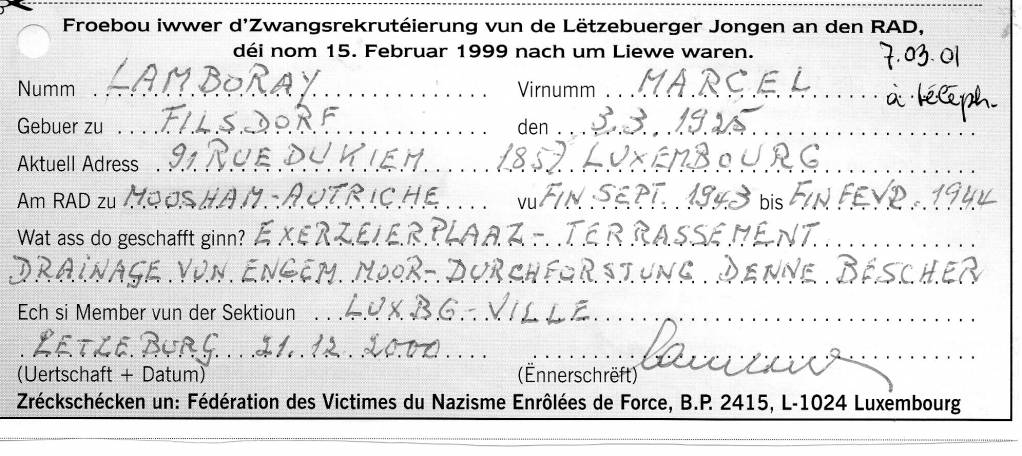 Froebou iwwer d'Zwangsrekrutéierung vun de Lëtzebuerger Jongen an den RAD,
déi nom 15. Februar 1999 nach um Liewe waren.
7.03.01
à téléph.
Numm LAMBORAY Virnumm MARCEL
Gebuer zu FILSDORF den 3.3.1925
Aktuell Adress 91 RUE DU KIEM 1857 LUXEMBOURG
Am RAD zu MOOSHAM-AUTRICHE vu FIN SEPT. 1943 bis FIN FEVR. 1944
Wat ass do geschafft ginn? EXERZEIERPLAAZ - TERRASSEMENT
DRAINAGE VUN ENGEM MOOR - DURCHFORSTUNG DENNE BËSCHER
Ech si Member vun der Sektioun LUXBG-VILLE
LETZEBURG 21.12 2000
(Uertschaft + Datum) (Ënnerschrëft)
Zréckschécken un: Fédération des Victimes du Nazisme Enrôlées de Force, B.P. 2415, L-1024 Luxembourg